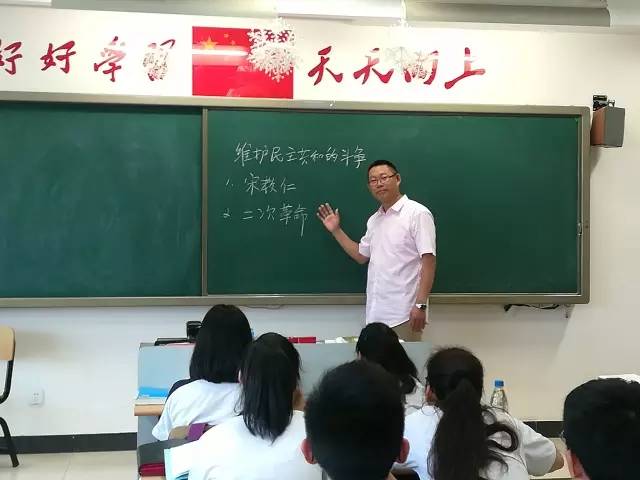 好好学习 天天向上
维护民主共和的斗争
1. 宋教仁
2. 二次革命